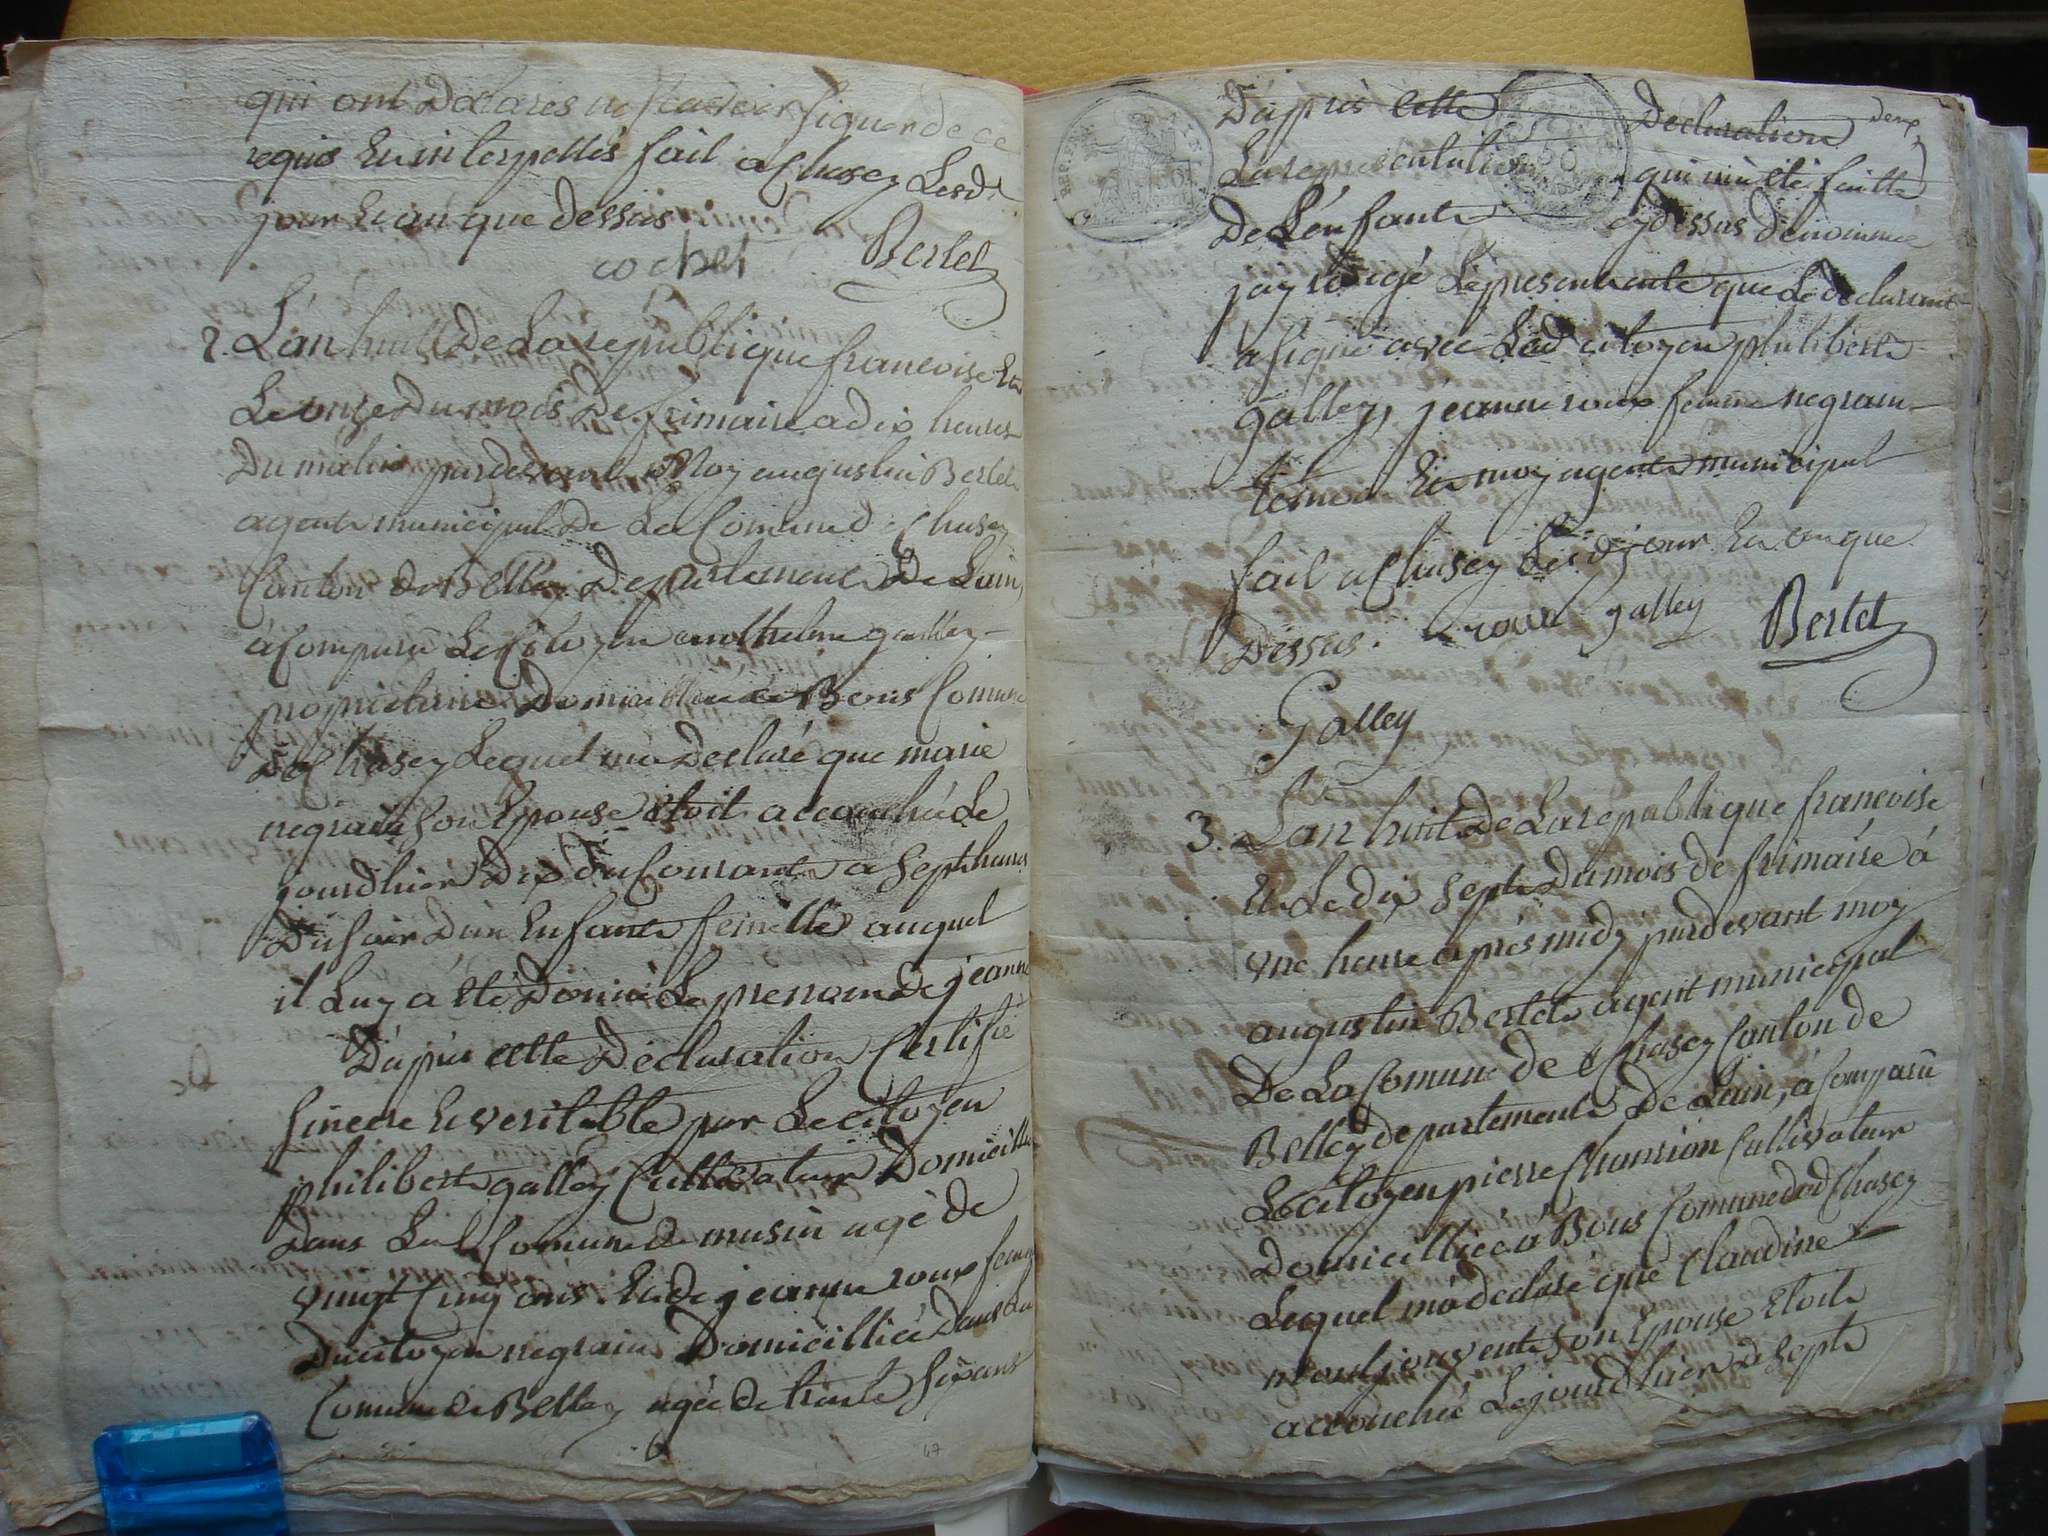 qui ont Declarés ne scavoir signer de ce
requis Et interpellés fait a Chasey Lesd
jour Et an que dessus
cochet Bertet
2. L'an huit De La republique francoise Et
Le onze Du mois De frimaire a dix heures
Du matin pardevant Moy augustin Bertet
agent municipal De La Comune d Chasey
Canton de Belley Departement De Lain,
à Comparu Le Citoyen anthelme galley
proprietaire Domicillié a Bons Comune
De Chasey Lequel m'a Declaré que marie
negrain son Epouse Etoit accouchée Le
jourdhier Dix du Courant a sept heures
Du soir D'un Enfant femelle auquel
il Luy a été Donné Le prenom de jeanne
D'apres cette Declaration Certifié
sincere Et veritable par Le citoyen
philibert galley Cultivateur Domicillié
Dans La Comune de musin agé de
vingt Cinq ans Et de jeanne roux femme
Du citoyen negrain Domicilliée Dans La
Comune de Belley agée de trente six ans
67
deux
D'apres cette Declaration
La representation qui m'a été faitte
De L'enfant cy dessus denommé
jay redigé Le present acte que Le declarant
a signé avec Led citoyen philibert
galley, jeanne roux femme negrain
temoin Et moy agent municipal
fait a Chasey Lesd jour Et an que
Dessus. roux galley Bertet
Galley
3. L'an huit De La republique francoise
Et Le dix sept Du mois de frimaire à
une heure après midy pardevant moy
augustin Bertet agent municipal
De La Comune de Chasey Canton de
Belley departement De Lain, à Comparu
Le citoyen pierre Chamion Cultivateur
Domicillié à Bons Comune dud Chasey
Lequel m'a declaré que Claudine
montjouvent son Epouse Etoit
accouchée Le jourdhier à sept